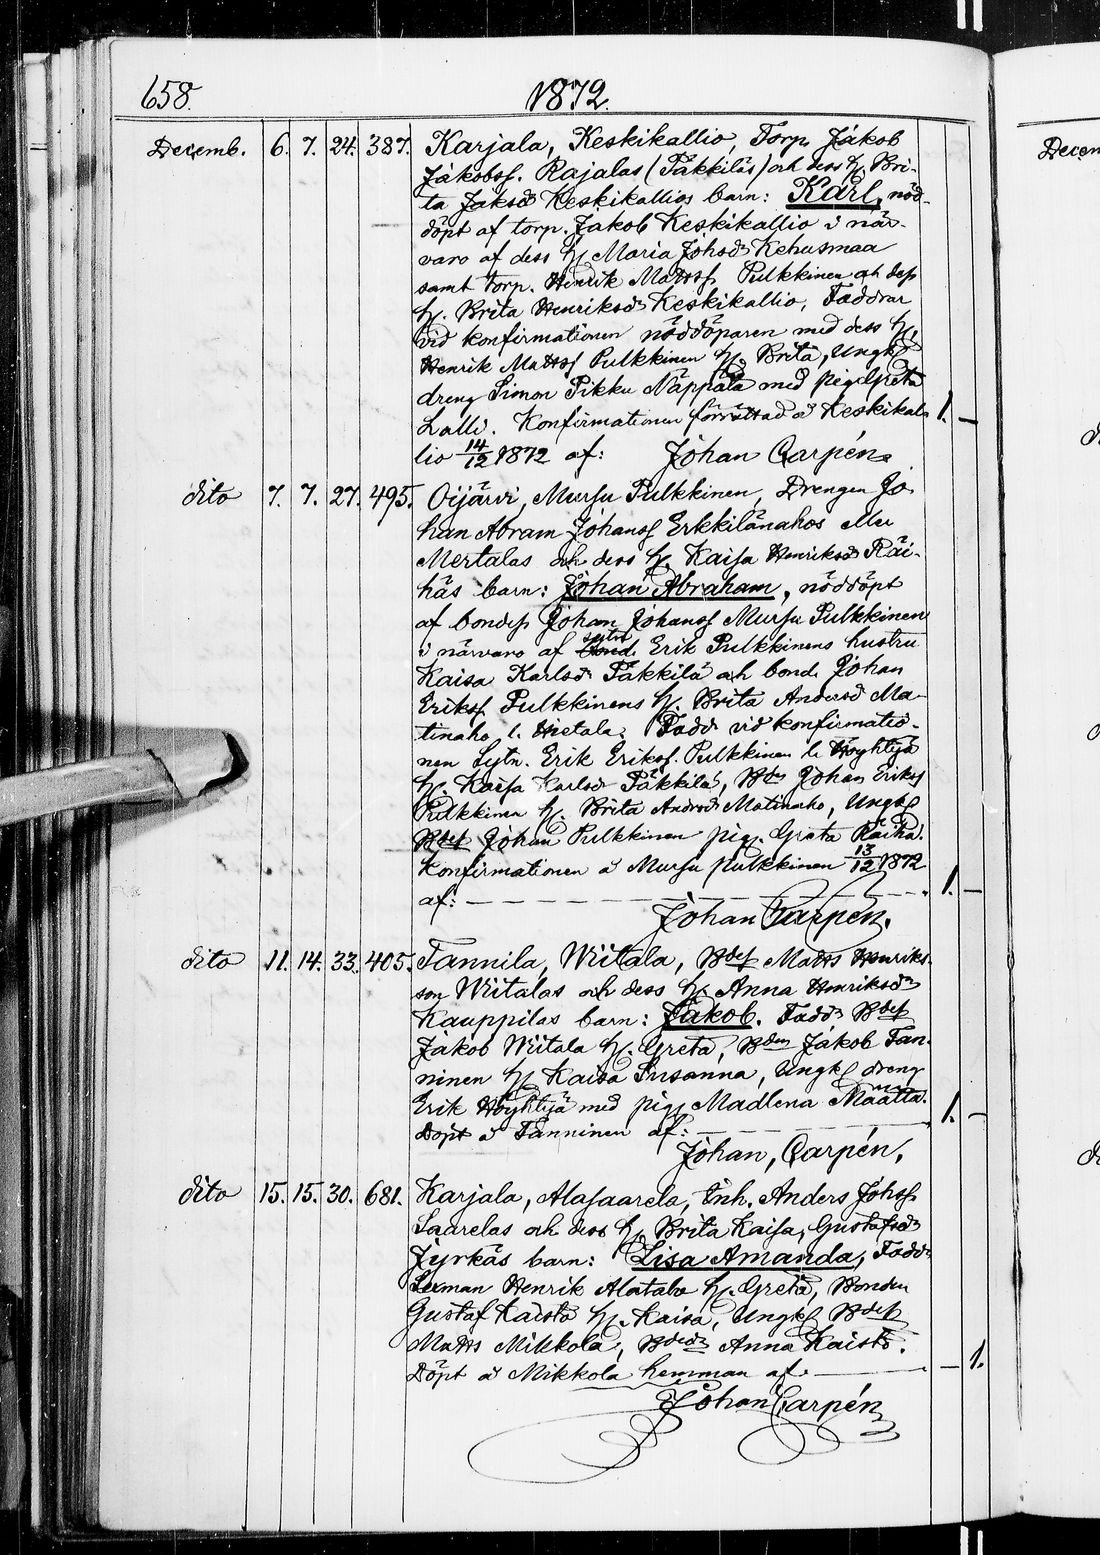 658.
1872.
Decemb. 6. 7. 24. 387. Karjala, Keskikallio, Torp. Jakob
Jakobss. Rajalas (Päkkiläs) och dess H. Bri-
ta Jaksdr Keskikallios barn: Karl, nöd-
döpt af torp. Jakob Keskikallio i när-
varo af dess H. Maria Johsdr Kehusmaa
samt torp. Henrik Mattss. Pulkkinen och dess
H. Brita Henriksdr Keskikallio, Faddrar
vid konfirmationen nöddöparen med dess H.
Henrik Mattss Pulkkinen H. Brita, Ungkl
dreng Simon Pikku Näppälä med pig. Greta
Lalli. Konfirmationen förrättad å Keskikal- 1. –
lio 14/12 1872 af: Johan Carpén.
dito 7. 7. 27. 495. Oijärvi, Mursu Pulkkinen, Drengen Jo-
han Abram Johanss Erkkilänahos
Mertalas och dess H. Kaisa Henriksdr Räi-
häs barn: Johan Abraham, nöddöpt
af bondess Johan Johanss Mursu Pulkkinen
i närvaro af sytn Erik Pulkkinens hustru
Kaisa Karlsdr Päkkilä och bond. Johan
Erikss Pulkkinens H. Brita Andersd Ma-
tinaho l. Hietala. Fadd vid konfirmatio-
nen Sytn. Erik Erikss. Pulkkinen l. Höyhtyä
H. Kaisa Karlsdr Päkkilä, Bdn Johan Erikss
Pulkkinen H. Brita Andrsdr Matinaho, Ungkl
Bdess Johan Pulkkinen pig. Greta Räihä.
Konfirmationen å Mursu Pulkkinen 13/12 1872
af: 1. –
Johan Carpén.
dito 11. 14. 33. 405. Tannila, Wiitala, Bdess Matts Henriks-
son Wiitalas och dess H. Anna Henriksdr
Kauppilas barn: Jakob. Fadd: Bdess
Jakob Wiitala H. Greta, Bden Jakob Tan-
ninen H. Kaisa Susanna, Ungkl dreng
Erik Höyhtyä med pig. Madlena Määttä. 1. –
Döpt å Tanninen af:
Johan, Carpén,
dito 15. 15. 30. 681. Karjala, Alasaarela, Inh. Anders Johss.
Saarelas och dess H. Brita Kaisa, Gustafsdr
Jyrkäs barn: Lisa Amanda, Fadd:
Lexman Henrik Alatalo H. Greta, Bonden
Gustaf Kaisto H. Kaisa, Ungkl Bdess
Matts Mikkola, Bdedr Anna Kaisto.
Döpt å Mikkola hemman af – 1.
Johan Carpén
Decem